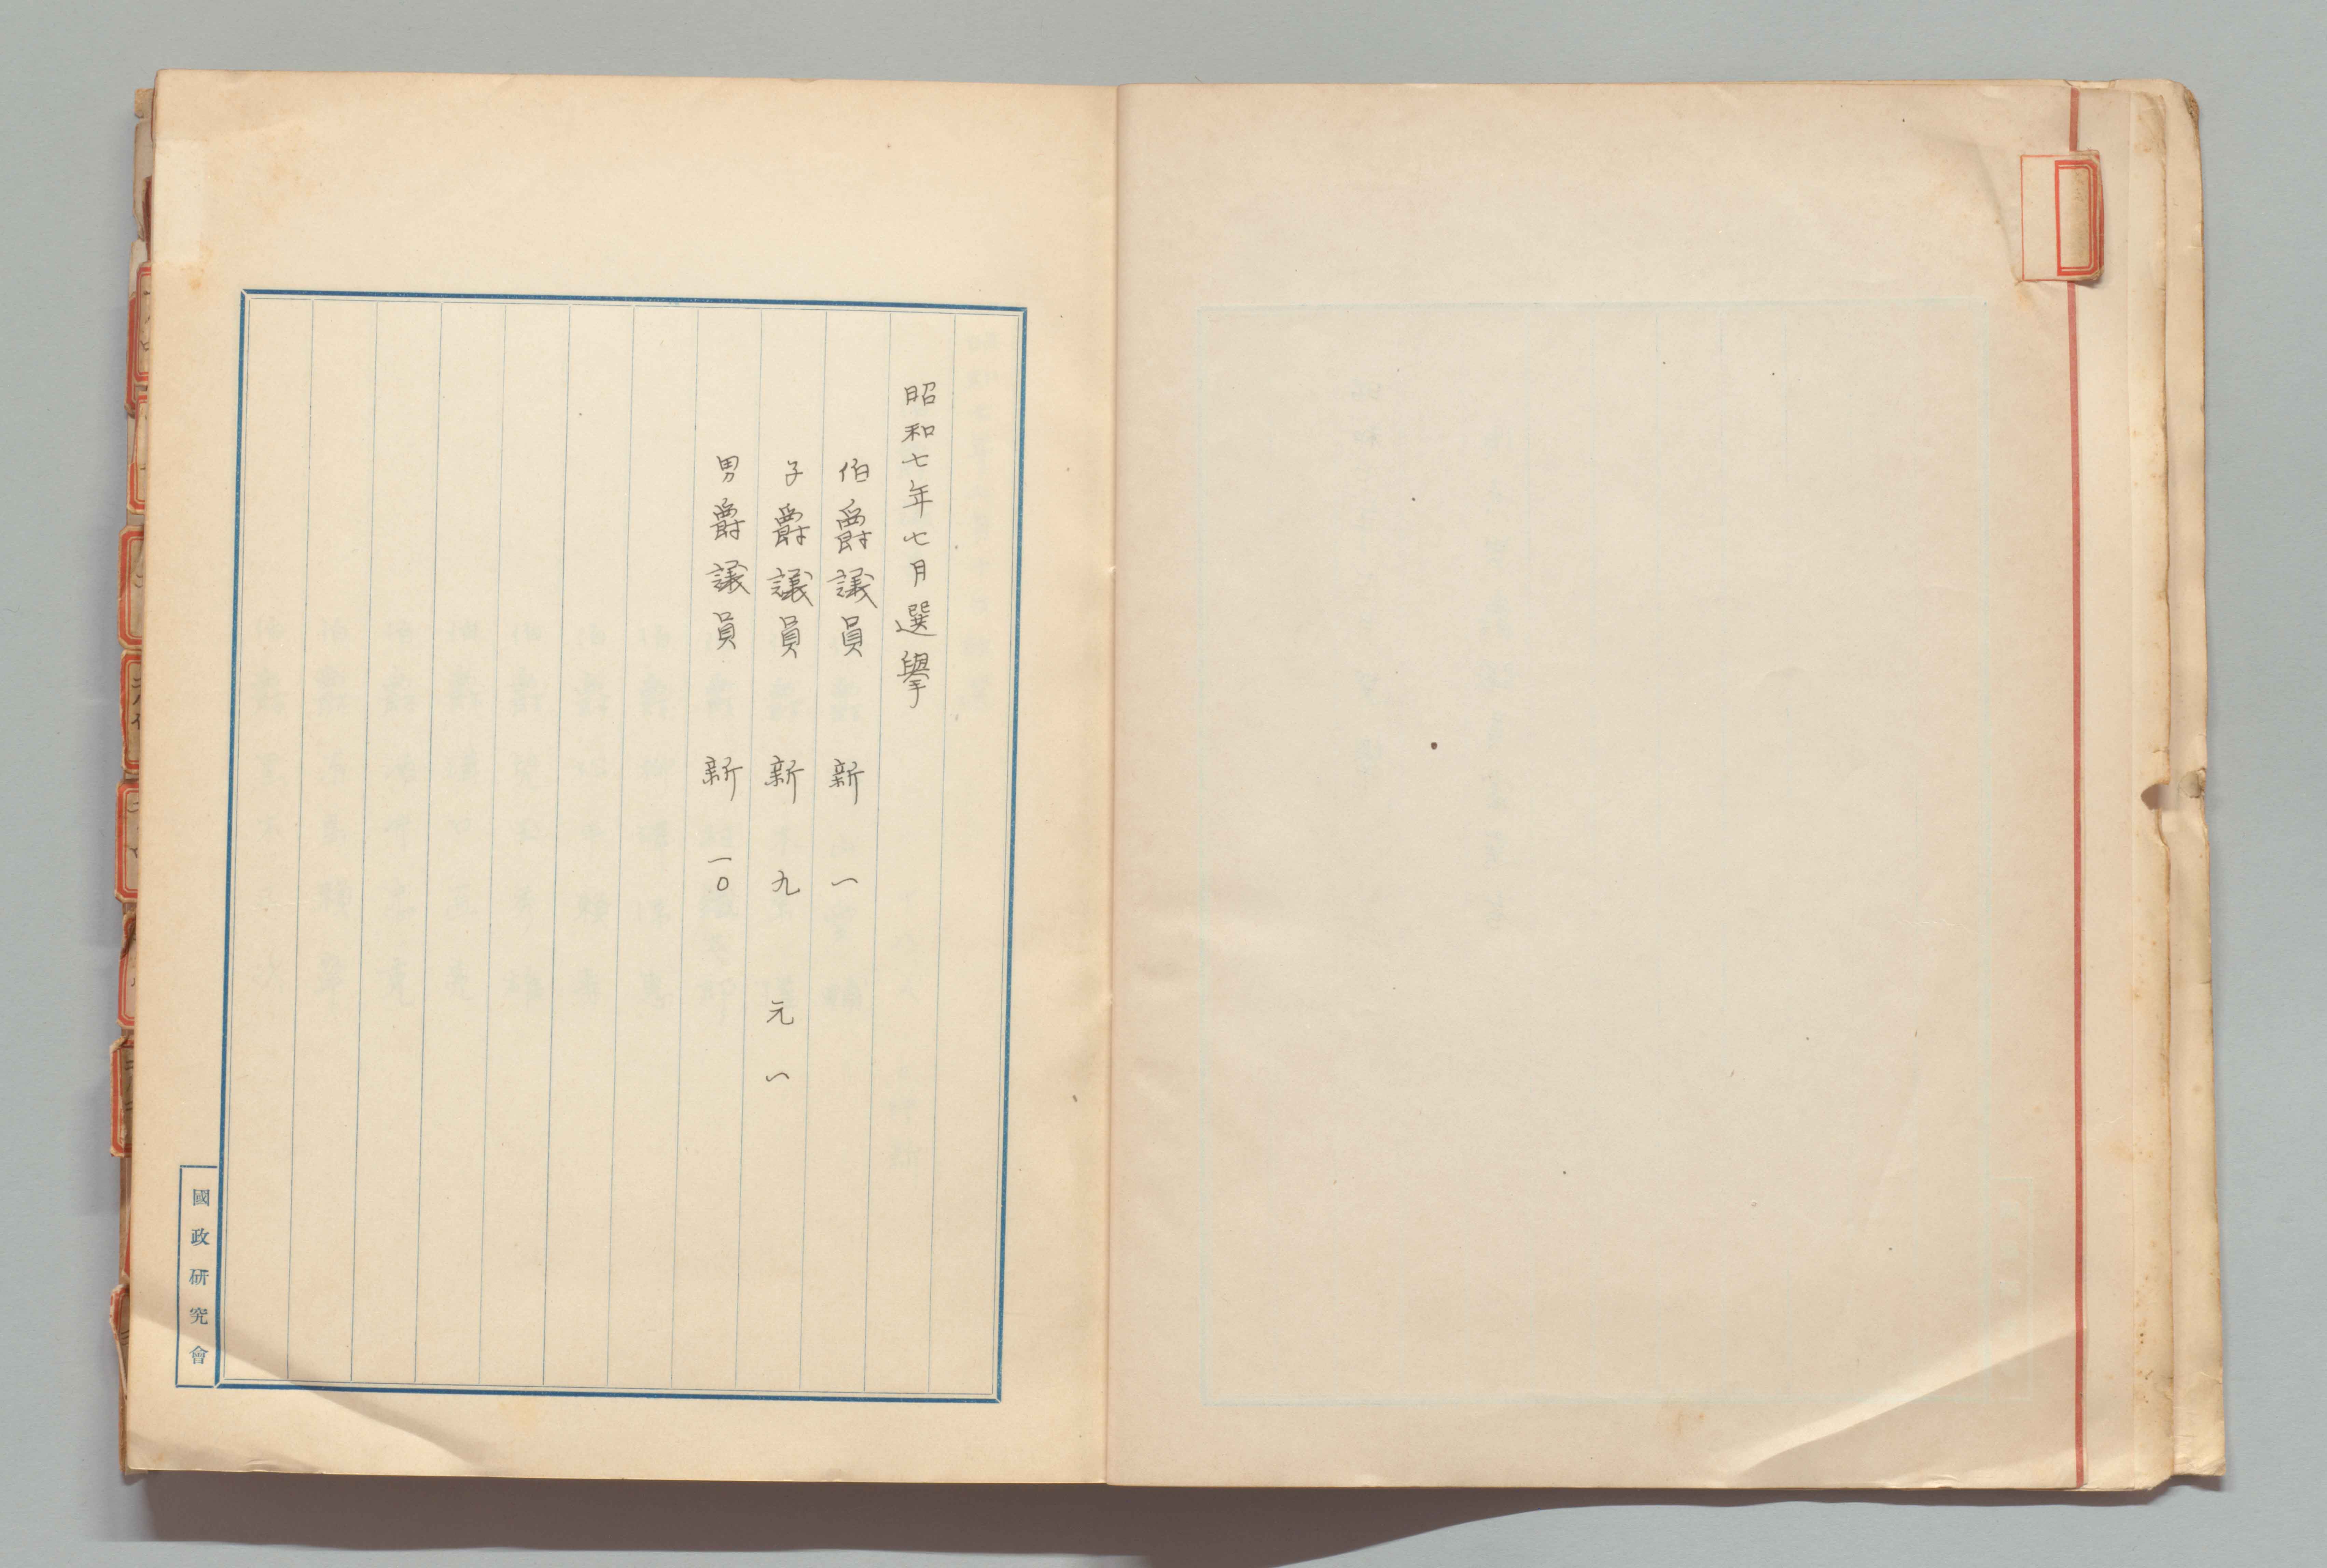 昭和七年七月選擧
伯爵議員 新 一
子爵議員 新 九 元 一
男爵議員 新 一〇
國政研究會